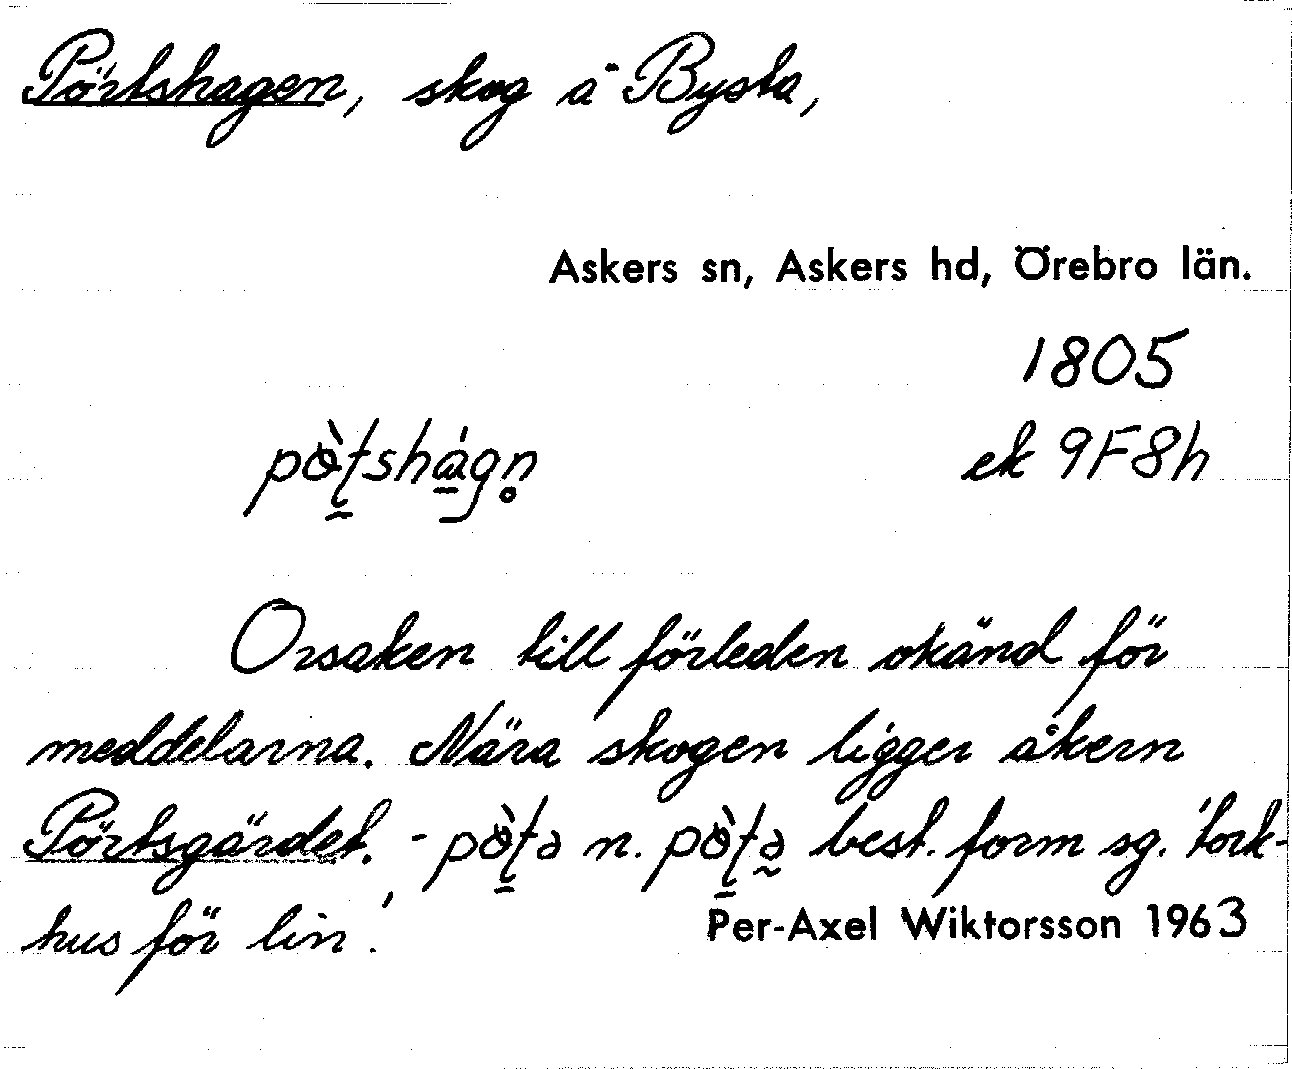 Pörtshagen, skog å Bysta,
Askers sn, Askers hd, Örebro län.
1805
pɵ̀ʈshágn̥ ek 9F8h
Orsaken till förleden okänd för
meddelarna. Nära skogen ligger åkern
Pörtsgärdet. - pɵ̀ʈə n. pɵ̀ʈə̰ best. form sg. 'tork-
hus för lin'.
Per-Axel Wiktorsson 1963